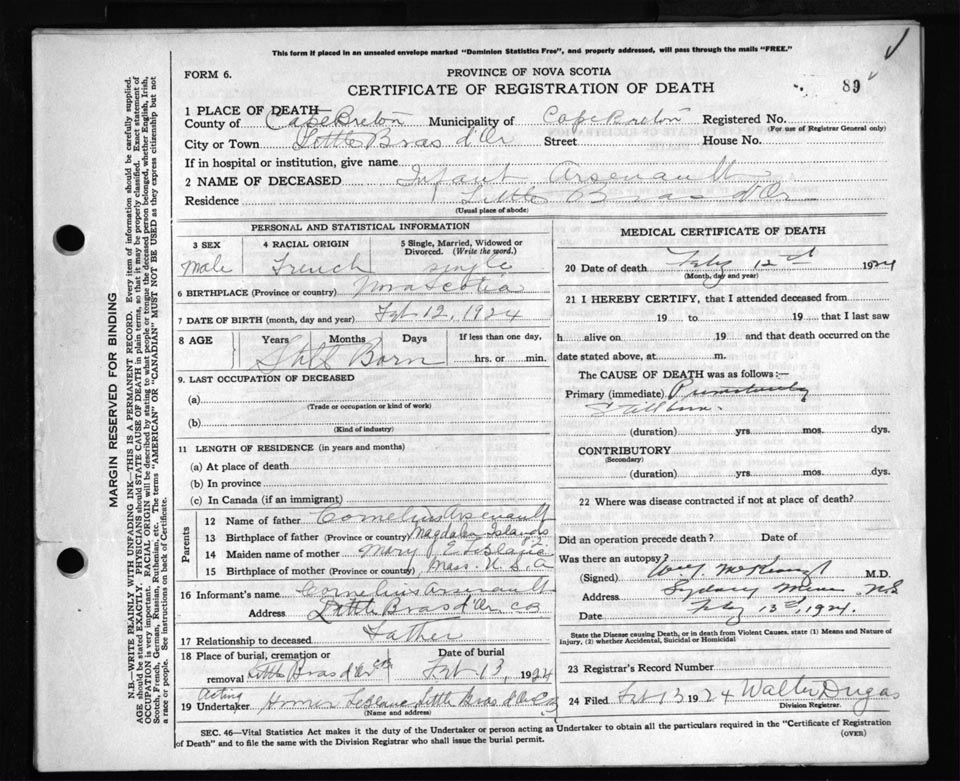 This form if placed in an unsealed envelope marked "Dominion Statistics Free", and properly addressed, will pass through the mails "FREE."
FORM 6.
PROVINCE OF NOVA SCOTIA
CERTIFICATE OF REGISTRATION OF DEATH
89
1 PLACE OF DEATH
County of Cape Breton Municipality of Cape Breton Registered No.
(For use of Registrar General only)
City or Town Little Bras d'Or Street House No.
If in hospital or institution, give name
2 NAME OF DECEASED Infant Arsenault
Residence Little Bras d'Or
(Usual place of abode)
PERSONAL AND STATISTICAL INFORMATION
3 SEX 4 RACIAL ORIGIN 5 Single, Married, Widowed or Divorced. (Write the word.)
Male French single
6 BIRTHPLACE (Province or country) Nova Scotia
7 DATE OF BIRTH (month, day and year) Fbt 12, 1924
8 AGE Years Months Days If less than one day,
Still Born hrs. or min.
9. LAST OCCUPATION OF DECEASED
(a)
(Trade or occupation or kind of work)
(b)
(Kind of industry)
11 LENGTH OF RESIDENCE (in years and months)
(a) At place of death
(b) In province
(c) In Canada (if an immigrant)
Parents
12 Name of father Cornelius Arsenault
13 Birthplace of father (Province or country) Magdalen Islands
14 Maiden name of mother Mary E. LeBlanc
15 Birthplace of mother (Province or country) Mass. U.S.A
16 Informant's name Cornelius Arsenault
Address Little Bras d'Or CB
17 Relationship to deceased Father
18 Place of burial, cremation or Date of burial
removal Little Bras d'Or Fbt 13, 1924
Acting
19 Undertaker Homer LeBlanc Little Bras d'Or CB
(Name and address)
MEDICAL CERTIFICATE OF DEATH
20 Date of death Feby 12 1924
(Month, day and year)
21 I HEREBY CERTIFY, that I attended deceased from
19 to 19 that I last saw
h alive on 19 and that death occurred on the
date stated above, at m.
The CAUSE OF DEATH was as follows:—
Primary (immediate)
Stillborn.
(duration) yrs. mos. dys.
CONTRIBUTORY
(Secondary)
(duration) yrs. mos. dys.
22 Where was disease contracted if not at place of death?
Did an operation precede death? Date of
Was there an autopsy?
(Signed) M.D.
Address Sydney Mines N.S
Date Feby 13, 1924.
State the Disease causing Death, or in death from Violent Causes, state (1) Means and Nature of Injury, (2) whether Accidental, Suicidal or Homicidal
23 Registrar's Record Number
24 Filed Fbt 13 1924 Walter Dugas
Division Registrar.
SEC. 46—Vital Statistics Act makes it the duty of the Undertaker or person acting as Undertaker to obtain all the particulars required in the "Certificate of Registration
of Death" and to file the same with the Division Registrar who shall issue the burial permit.
(OVER)
MARGIN RESERVED FOR BINDING
N.B.—WRITE PLAINLY WITH UNFADING INK—THIS IS A PERMANENT RECORD. Every item of information should be carefully supplied.
AGE should be stated EXACTLY. PHYSICIANS should STATE CAUSE OF DEATH in plain terms, so that it may be properly classified. Exact statement of
OCCUPATION is very important. RACIAL ORIGIN will be described by stating to what people or tongue the deceased person belonged, whether English, Irish,
Scotch, French, German, Russian, Ruthenian, etc. The terms "AMERICAN" OR "CANADIAN" MUST NOT BE USED as they express citizenship but not
a race or people. See instructions on back of Certificate.